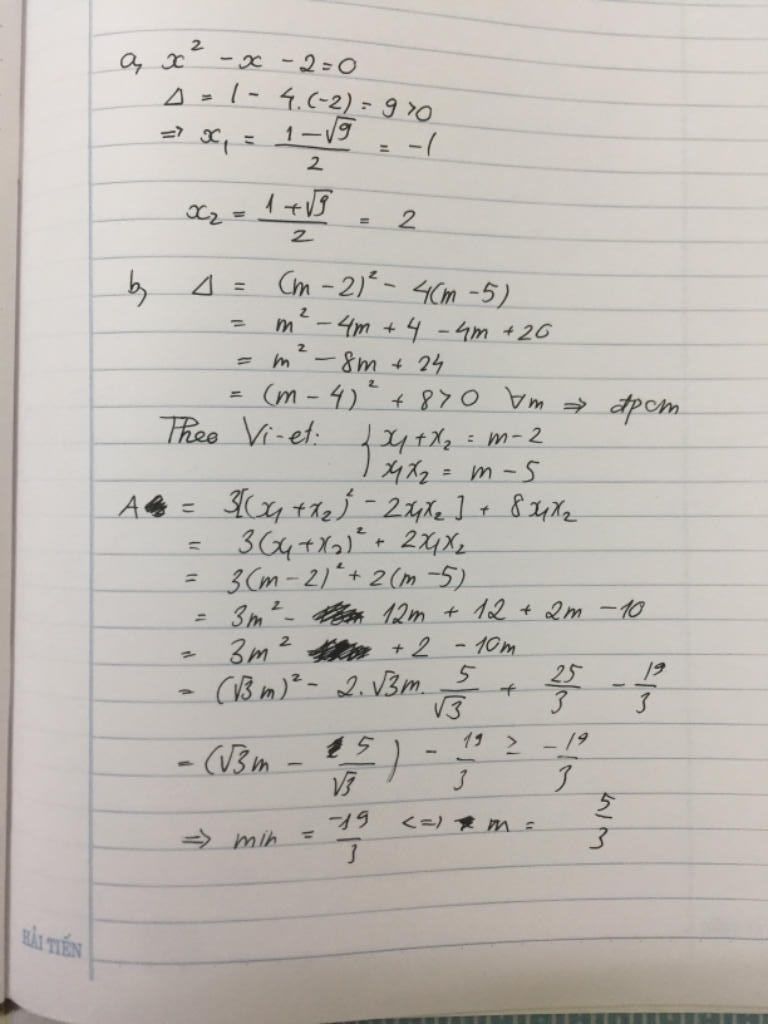 a, x² - x - 2 = 0
Δ = 1 - 4.(-2) = 9 > 0
=> x₁ = (1 - √9)/2 = -1
x₂ = (1 + √9)/2 = 2
b, Δ = (m - 2)² - 4(m - 5)
= m² - 4m + 4 - 4m + 20
= m² - 8m + 24
= (m - 4)² + 8 > 0 ∀m => đpcm
Theo Vi-et: { x₁ + x₂ = m - 2
x₁x₂ = m - 5
A = 3[(x₁ + x₂)² - 2x₁x₂] + 8x₁x₂
= 3(x₁ + x₂)² + 2x₁x₂
= 3(m - 2)² + 2(m - 5)
= 3m² - 12m + 12 + 2m - 10
= 3m² + 2 - 10m
= (√3m)² - 2.√3m.5/√3 + 25/3 - 19/3
= (√3m - 5/√3) - 19/3 ≥ -19/3
=> min = -19/3 <=> m = 5/3
HẢI TIẾN